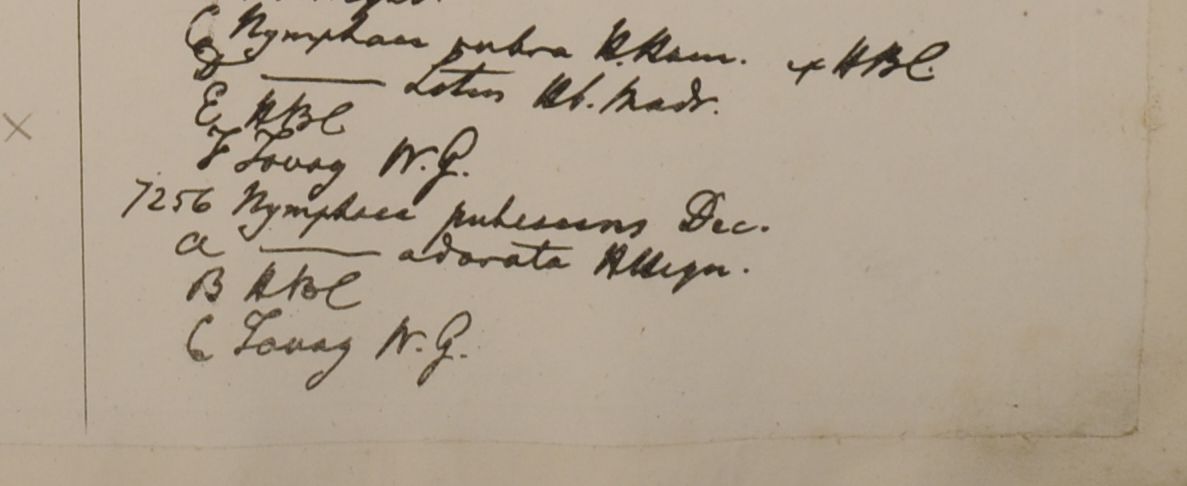 C Nymphaea rubra H.Ham. + HBC.
D —— Lotus Hb. Madr.
E HBC
F Tavoy W.G.
7256 Nymphaea pubescens Dec.
a —— odorata HWign.
B HBC
C Tavoy W.G.